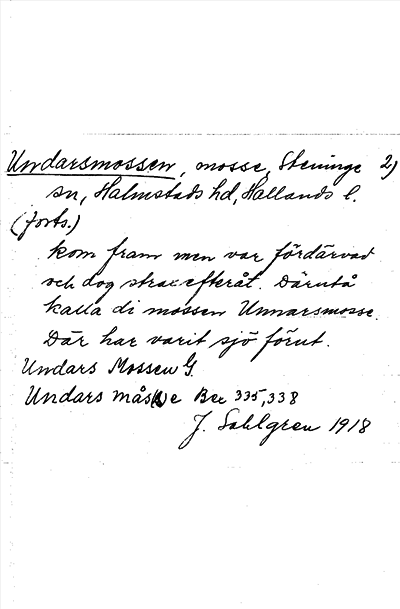 Undarsmossen, mosse, Steninge 2)
sn, Halmstads hd, Hallands l.
(forts.)
kom fram men var fördärvad
och dog strax efteråt. Därutå
kalla di mossen Unnarsmosse.
Där har varit sjö förut.
Undars Mossen G.
Undars måse Bee 335,338
J. Sahlgren 1918